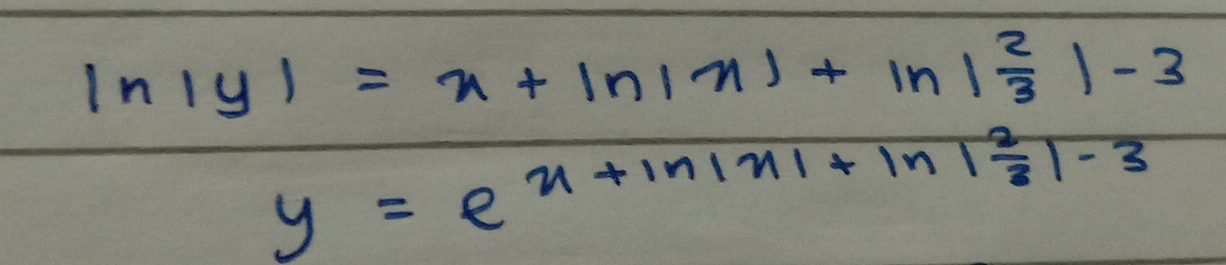 ln|y| = x + ln|x| + ln|2/3| - 3
y = e^{x + ln|x| + ln|2/3| - 3}